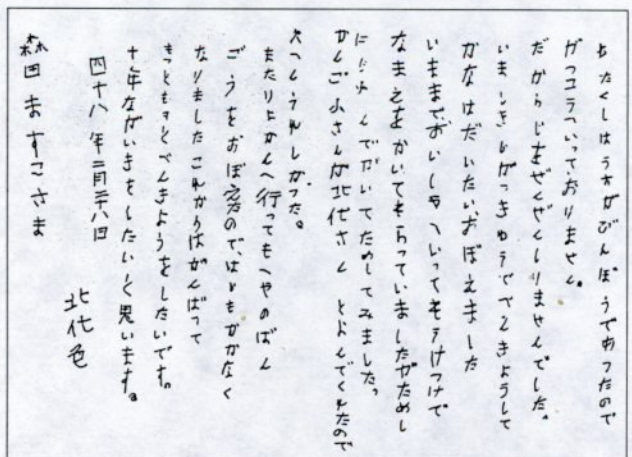 わたくしはうちがびんぼうであつたので
がつこうへいっておりません。
だからじをぜんぜんしりませんでした。
いましきじがっきゅうでべんきょうして
かなはだいたいおぼえました
いままでおいしゃへいってもうけつけで
なまえをかいてもらっていましたがためし
にじぶんでかいてためしてみました。
かんごふさんが北代さんとよんでくれたので
大へんうれしかった。
またりょかんへ行ってもへやのばん
ごうをおぼえたので、はじもかかなく
なりましたこれからはがんばって
もっともっとべんきょうをしたいです。
十年ながいきをしたいと思います。
四十八年二月二十八日
北代色
森田ますこさま